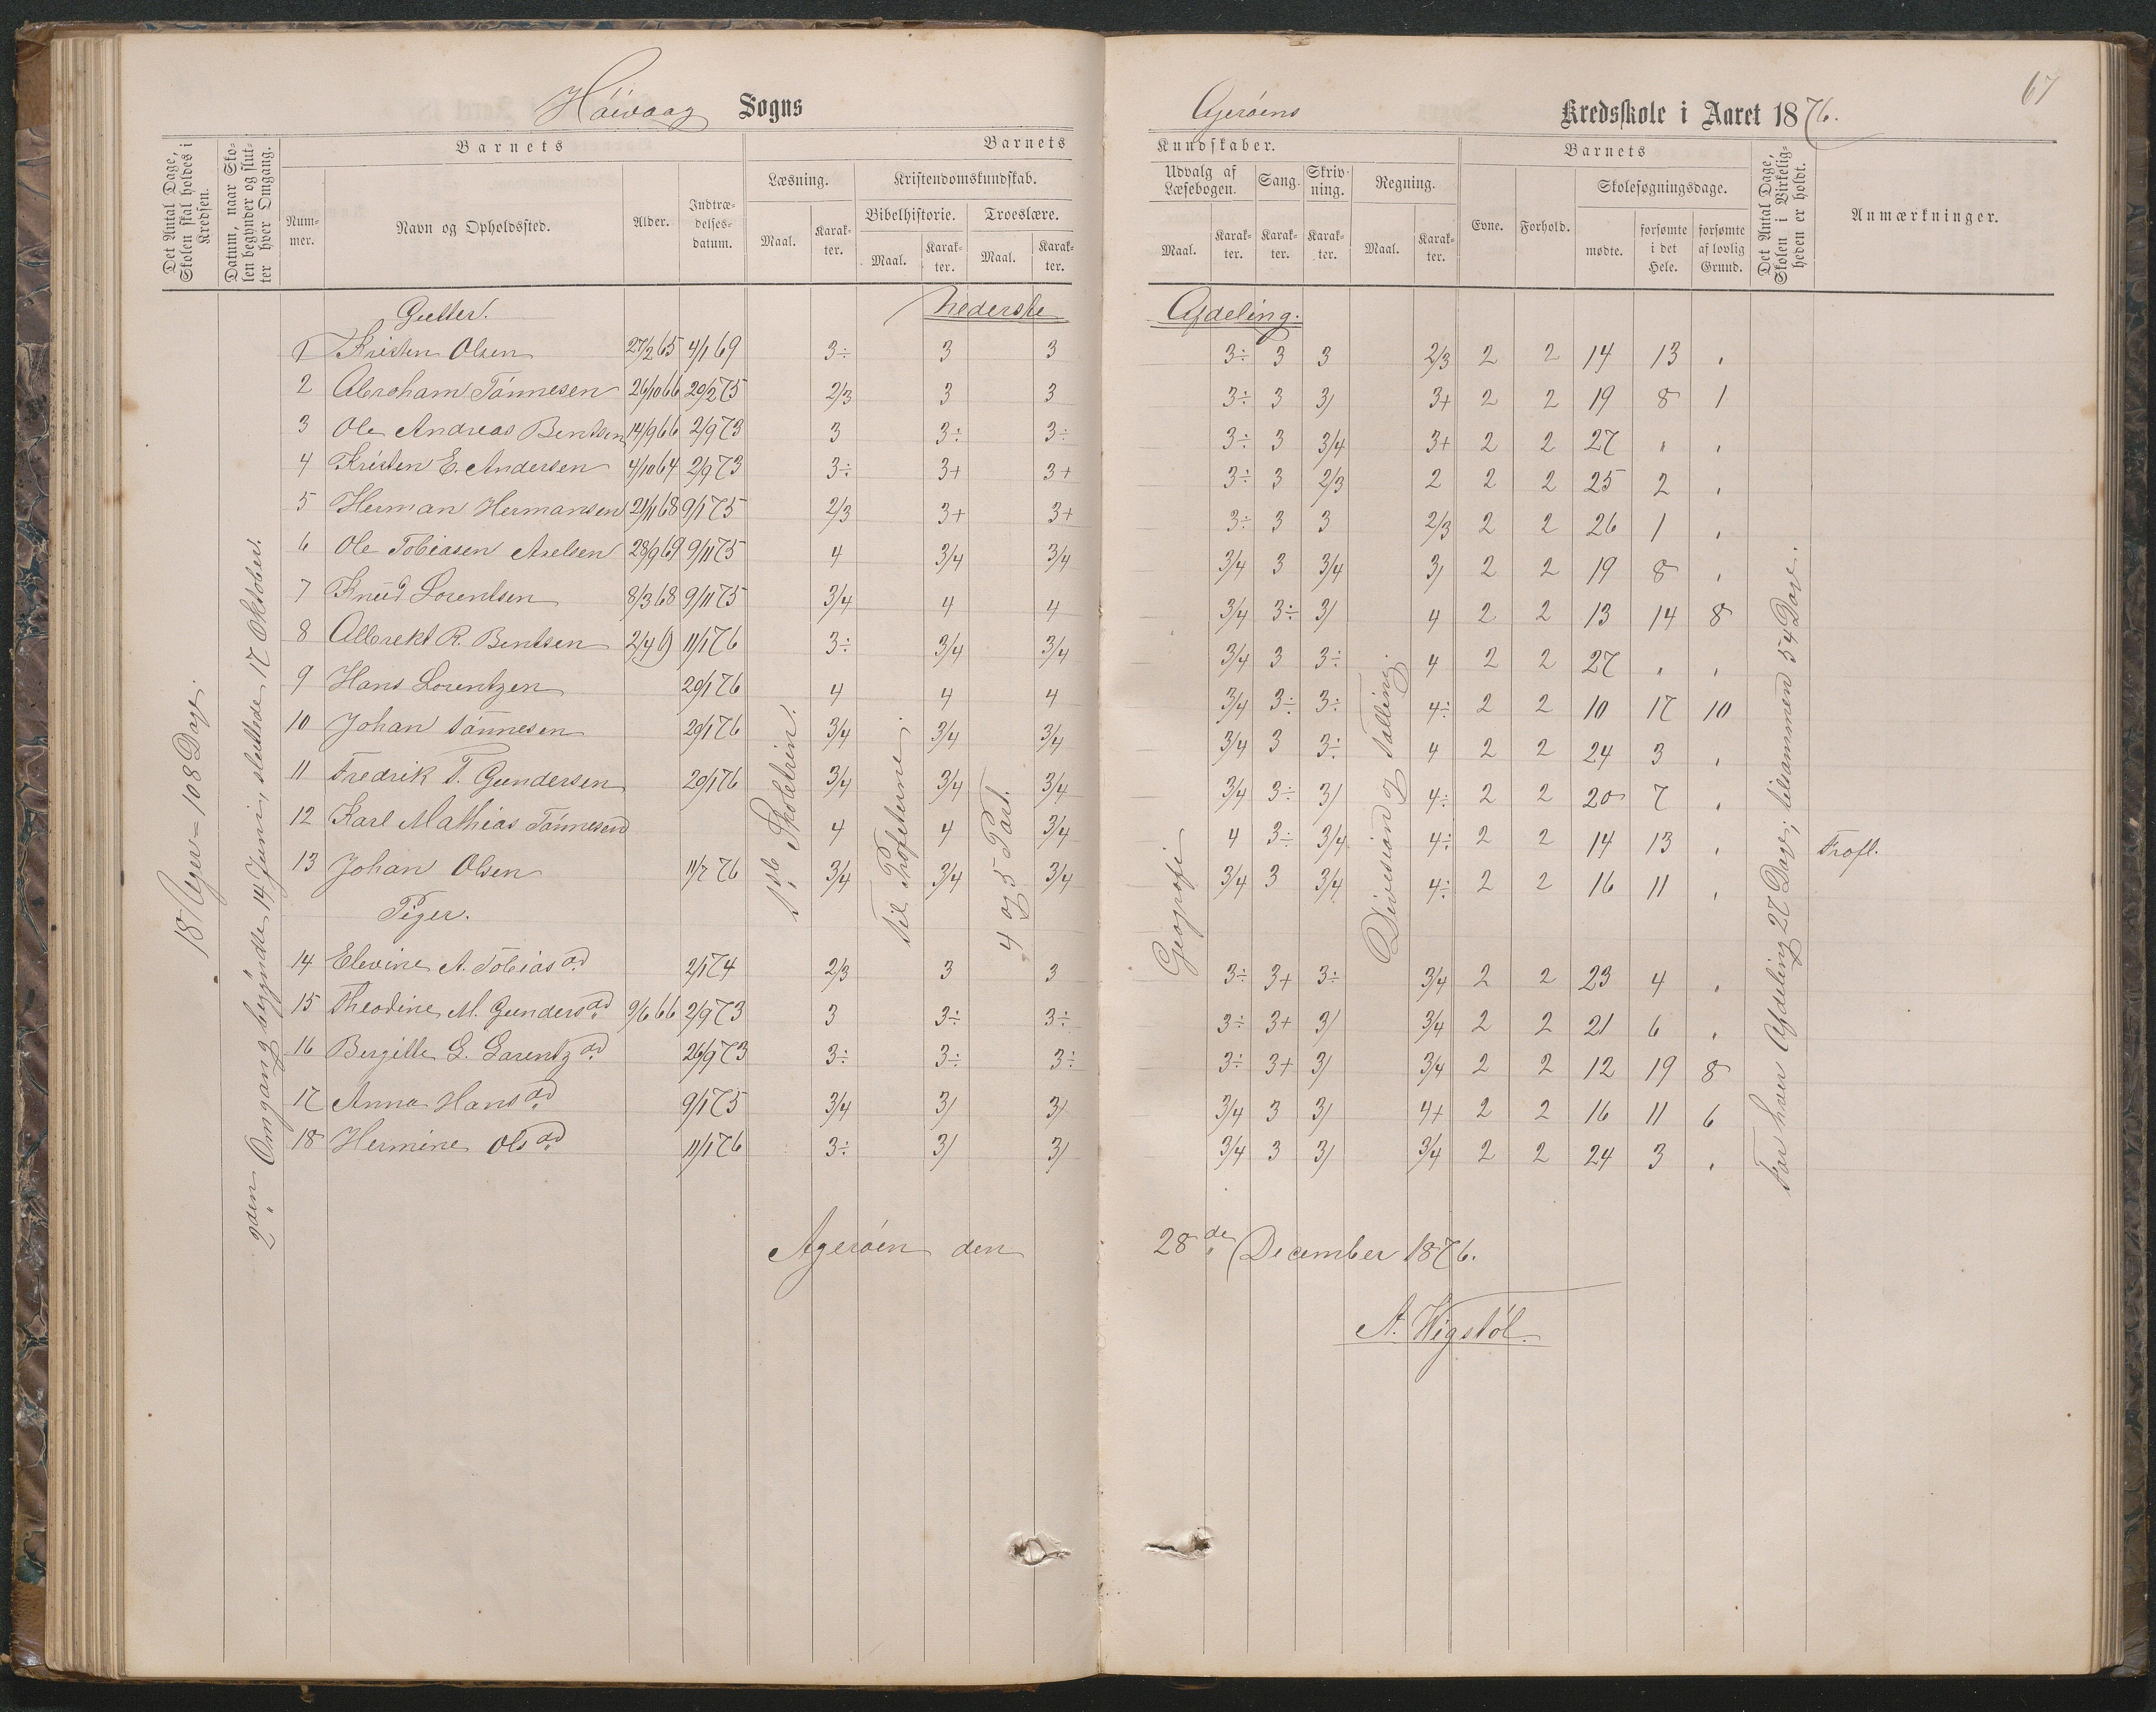 Höivaag Sogns
Det Antal Dage, Skolen skal holdes i Kredsen.
Datum, naar Skolen begynder og slutter hver Omgang.
Barnets
Nummer.
Navn og Opholdssted.
Alder.
Indtrædelsesdatum.
Barnets
Læsning.
Maal.
Karakter.
Kristendomskundskab.
Bibelhistorie.
Maal.
Karakter.
Troeslære.
Maal.
Karakter.
18 Uger = 108 Dage.
2den Omgang begyndte 14 Juni, sluttede 17 Oktober.
1ste Skoletrin.
Til Profeterne.
4 og 5 Part.
Gutter. Nederste
1 Kristen Olsen 27/2 65 4/1 69 3÷ 3 3
2 Abraham Tønnesen 26/10 66 20/2 75 2/3 3 3
3 Ole Andreas Bentsen 14/9 66 2/9 73 3 3÷ 3÷
4 Kristen E. Andersen 4/10 64 2/9 73 3÷ 3+ 3+
5 Herman Hermansen 21/11 68 9/1 75 2/3 3+ 3+
6 Ole Tobiasen Axelsen 28/9 69 9/11 75 4 3/4 3/4
7 Knud Lorentsen 8/3 68 9/11 75 3/4 4 4
8 Albrekt R. Bentsen 2/4 69 11/1 76 3÷ 3/4 3/4
9 Hans Lorentzen 29/1 76 4 4 4
10 Johan Tönnesen 29/1 76 3/4 3/4 3/4
11 Fredrik T. Gundersen 29/1 76 3/4 3/4 3/4
12 Karl Mathias Tönnesen 4 4 3/4
13 Johan Olsen 11/7 76 3/4 3/4 3/4
Piger.
14 Elevine A. Tobiasd. 2/1 74 2/3 3 3
15 Theodine M. Gundersd. 9/6 66 2/9 73 3 3÷ 3÷
16 Bergitte G. Lorentzd. 26/9 73 3÷ 3÷ 3÷
17 Anna Hansd. 9/1 75 3/4 3/ 3/
18 Hermine Olsd. 11/1 76 3÷ 3/ 3/
Agerøen den
67
Agerøens Kredsskole i Aaret 1876.
Kundskaber.
Udvalg af Læsebogen.
Maal.
Karakter.
Sang.
Karakter.
Skrivning.
Karakter.
Regning.
Maal.
Karakter.
Barnets
Evne.
Forhold.
Skolesøgningsdage.
mødte.
forsømte i det Hele.
forsømte af lovlig Grund.
Det Antal Dage, Skolen i Virkeligheden er holdt.
Anmærkninger.
Geografi
Division og Tælling.
For hver Afdeling 27 Dage; tilsammen 54 Dage.
Afdeling.
3÷ 3 3 2/3 2 2 14 13 "
3÷ 3 3/ 3+ 2 2 19 8 1
3÷ 3 3/4 3+ 2 2 27 " "
3÷ 3 2/3 2 2 2 25 2 "
3÷ 3 3 2/3 2 2 26 1 "
3/4 3 3/4 3/ 2 2 19 8 "
3/4 3÷ 3/ 4 2 2 13 14 8
3/4 3 3÷ 4 2 2 27 " "
3/4 3÷ 3÷ 4÷ 2 2 10 17 10
3/4 3 3÷ 4 2 2 24 3 "
3/4 3÷ 3/ 4÷ 2 2 20 7 "
4 3÷ 3/4 4÷ 2 2 14 13 " Trofl.
3/4 3 3/4 4÷ 2 2 16 11 "
3÷ 3+ 3÷ 3/4 2 2 23 4 "
3÷ 3+ 3/ 3/4 2 2 21 6 "
3÷ 3+ 3/ 3/4 2 2 12 19 8
3/4 3 3/ 4+ 2 2 16 11 6
3/4 3 3/ 3/4 2 2 24 3 "
28de December 1876.
A. Wigstöl.